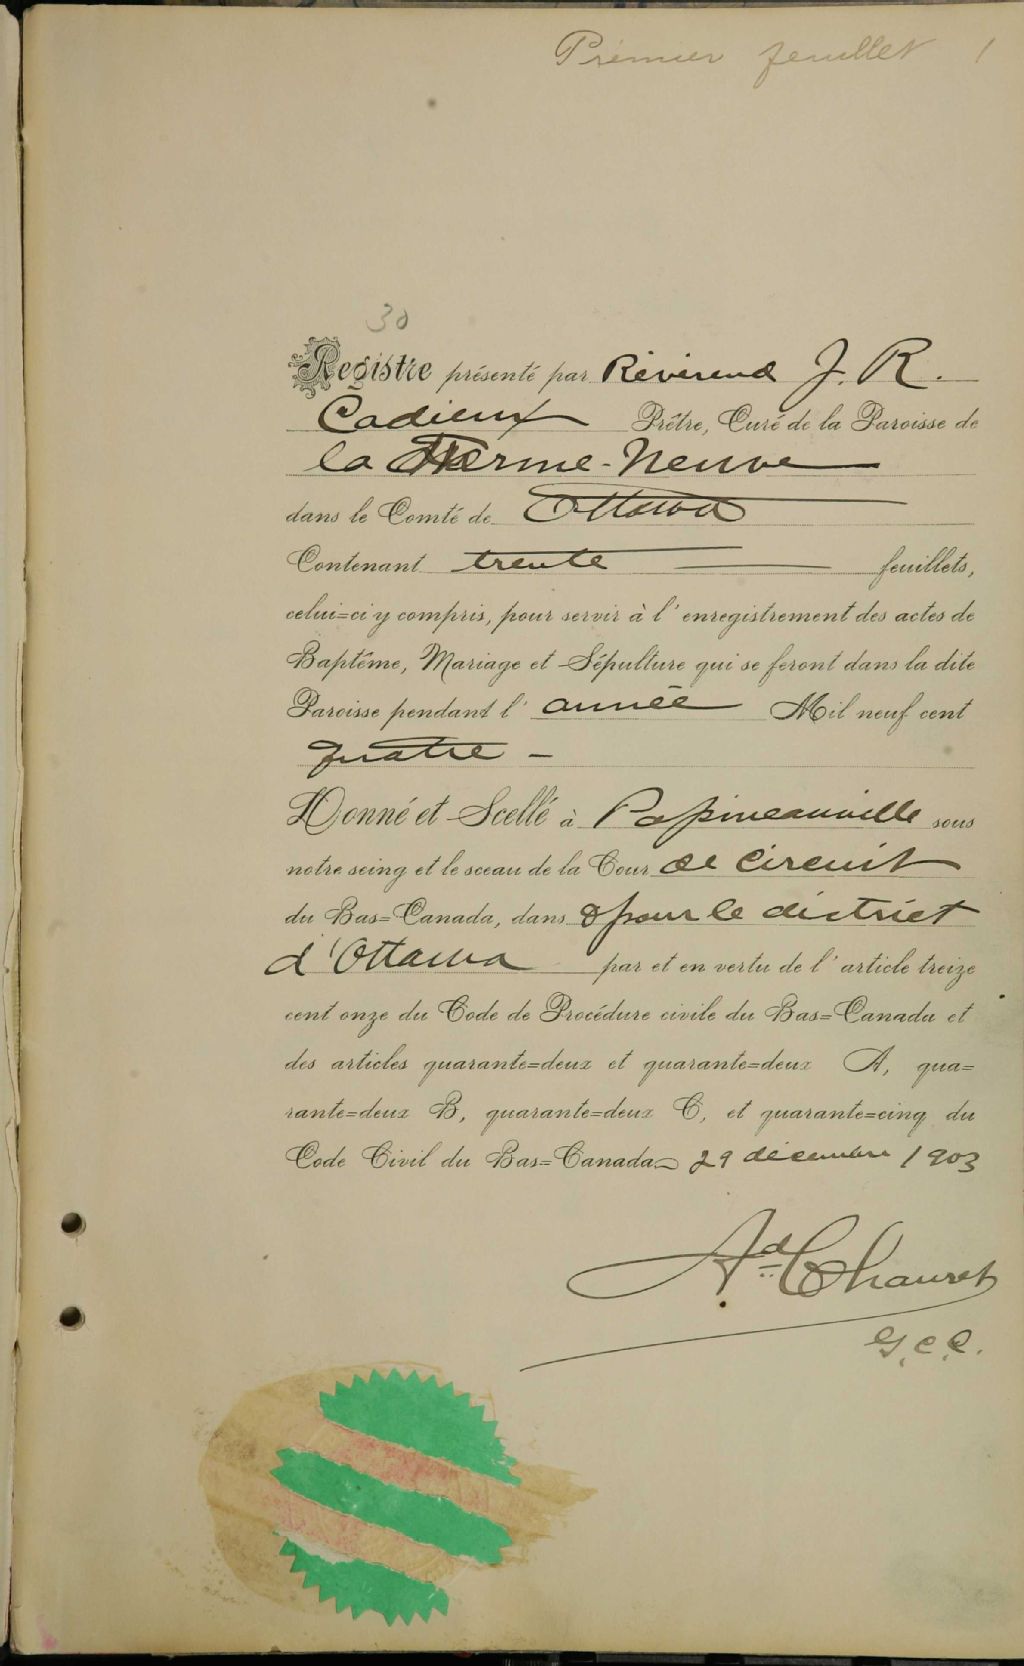 Premier feuillet 1
30
Registre présenté par Révérend J. R.
Cadieux Prêtre, Curé de la Paroisse de
la Ferme-Neuve
dans le Comté de Ottawa
Contenant trente feuillets,
celui=ci y compris, pour servir à l'enregistrement des actes de
Baptême, Mariage et Sépulture qui se feront dans la dite
Paroisse pendant l'année Mil neuf cent
quatre -
Donné et Scellé à Papineauville sous
notre seing et le sceau de la Cour de Circuit
du Bas=Canada, dans & pour le district
d'Ottawa par et en vertu de l'article treize
cent onze du Code de Procédure civile du Bas=Canada et
des articles quarante=deux et quarante=deux A, qua=
rante=deux B, quarante=deux C, et quarante=cinq du
Code Civil du Bas=Canada 29 décembre 1903
Ad Chauret
G.C.C.